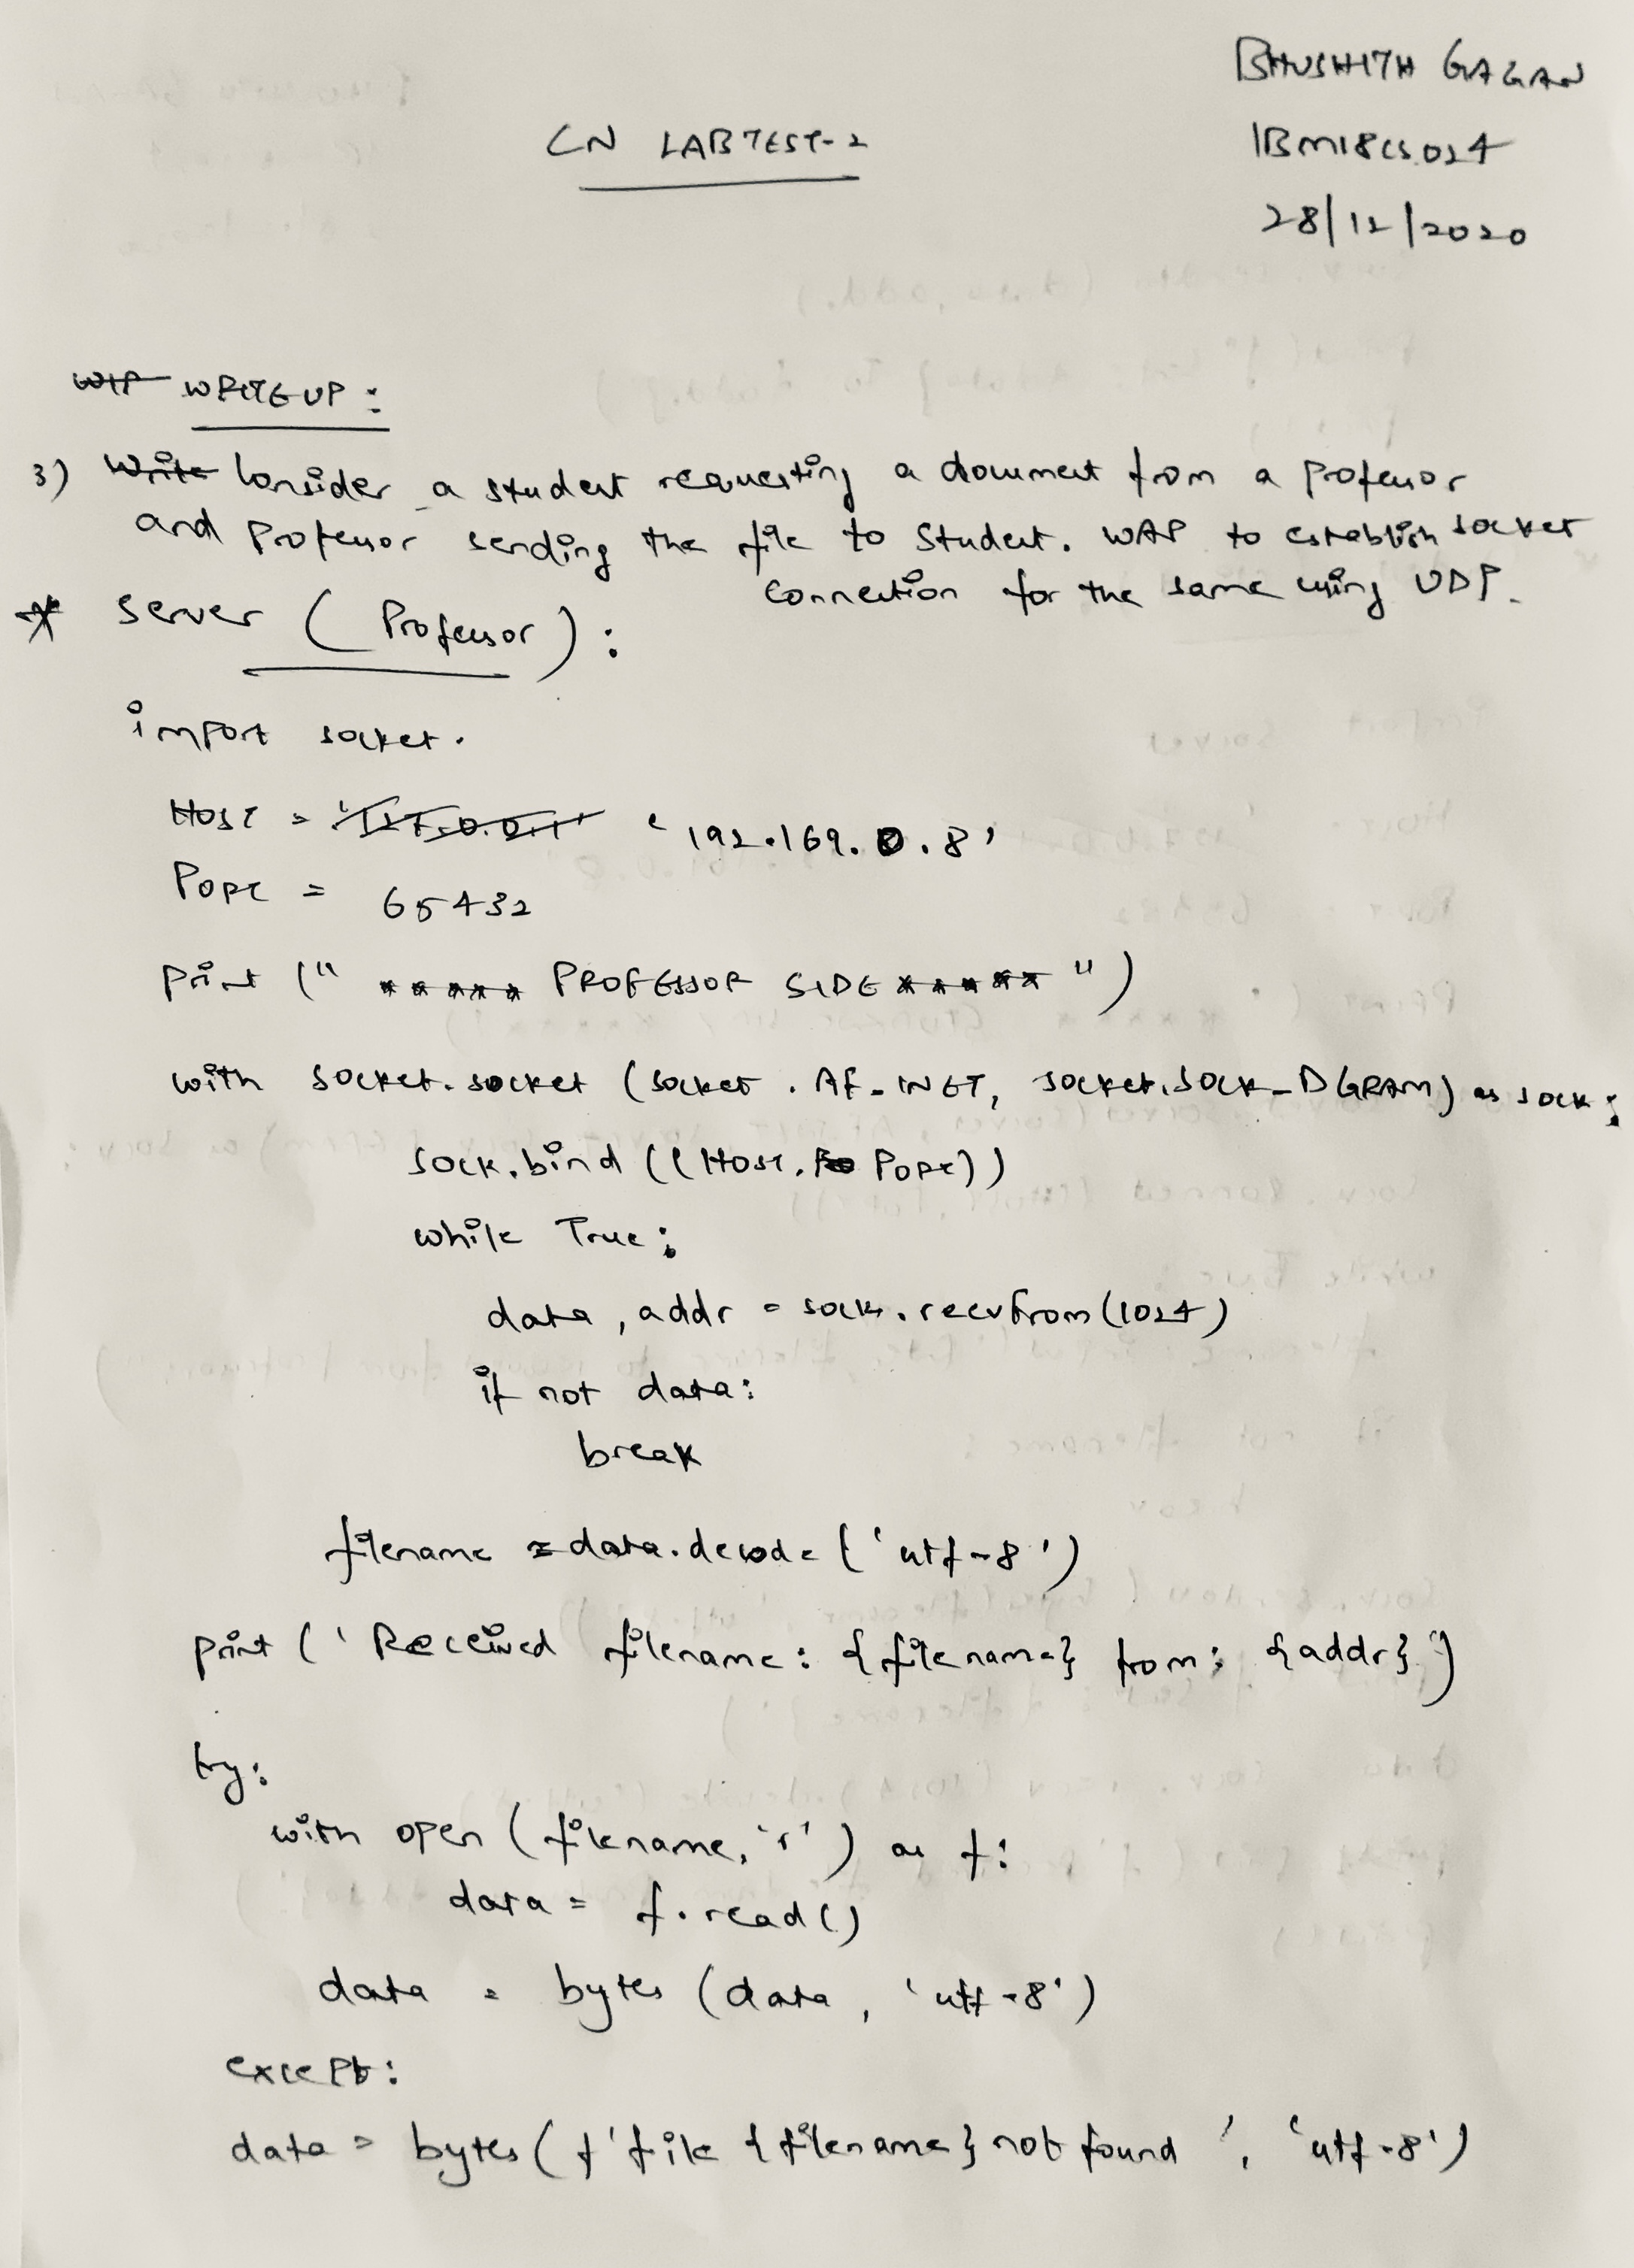 BHUSHITH GAGAN
CN LABTEST-2
1BM18CS024
28/12/2020
WRITEUP:
3) Write Consider a student requesting a document from a professor
and professor sending the file to Student. WAP to establish socket
connection for the same using UDP.
* Server (Professor):
import socket.
HOST = '127.0.0.1' '192.169.0.8'
PORT = 65432
print (" ***** PROFESSOR SIDE ***** ")
with socket.socket (socket.AF_INET, socket.SOCK_DGRAM) as sock:
sock.bind ((HOST, PORT))
while True:
data, addr = sock.recvfrom(1024)
if not data:
break
filename = data.decode ('utf-8')
print (' Received filename: {filename} from: {addr}')
try:
with open (filename, 'r') as f:
data = f.read()
data = bytes (data, 'utf-8')
except:
data = bytes (f'file {filename} not found ', 'utf-8')